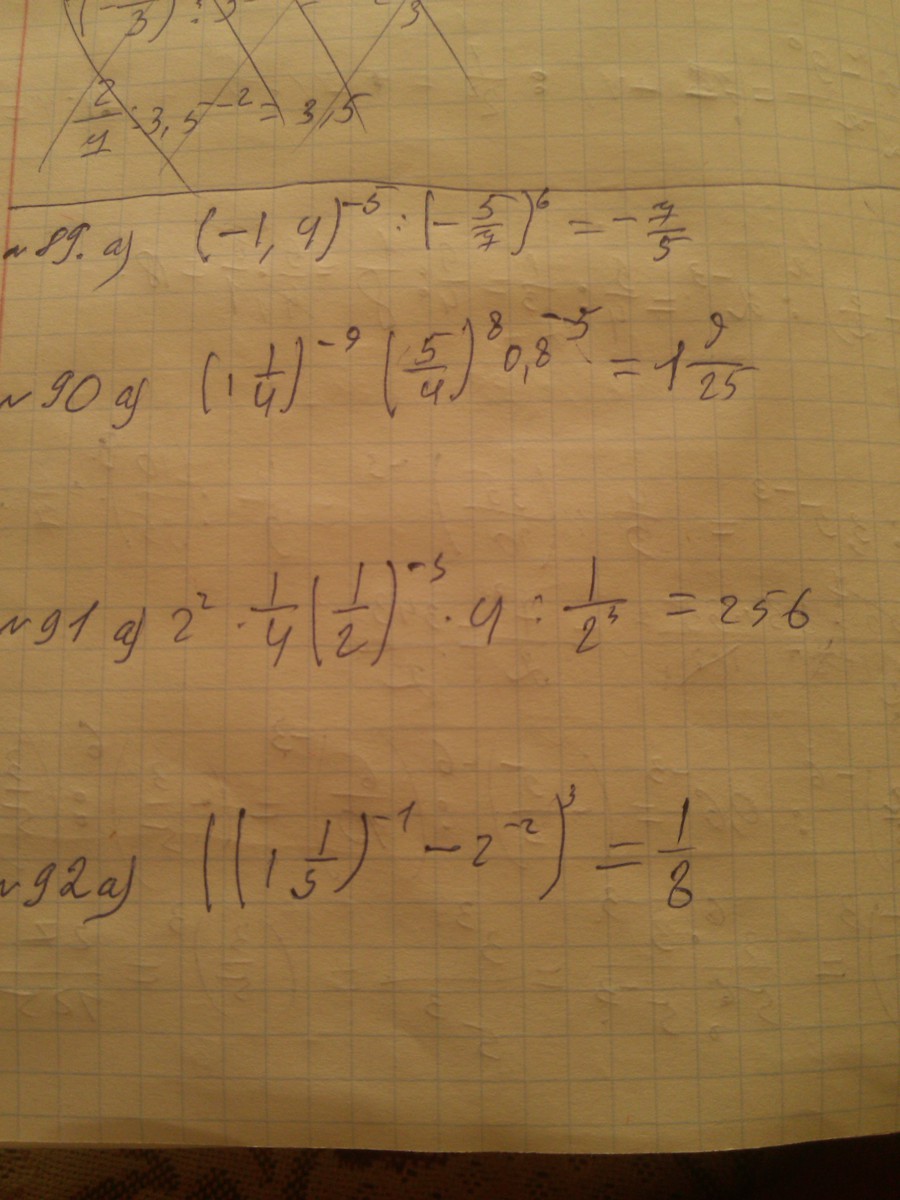 2/7 : 3,5⁻² = 3,5
№89. а) (-1,4)⁻⁵ : (-5/7)⁶ = -7/5
№90 а) (1 1/4)⁻⁹ (5/4)⁸ 0,8⁻⁵ = 1 9/25
№91 а) 2² · 1/4 (1/2)⁻³ · 4 : 1/2³ = 256
№92 а) ((1 1/5)⁻¹ - 2⁻²)³ = 1/8